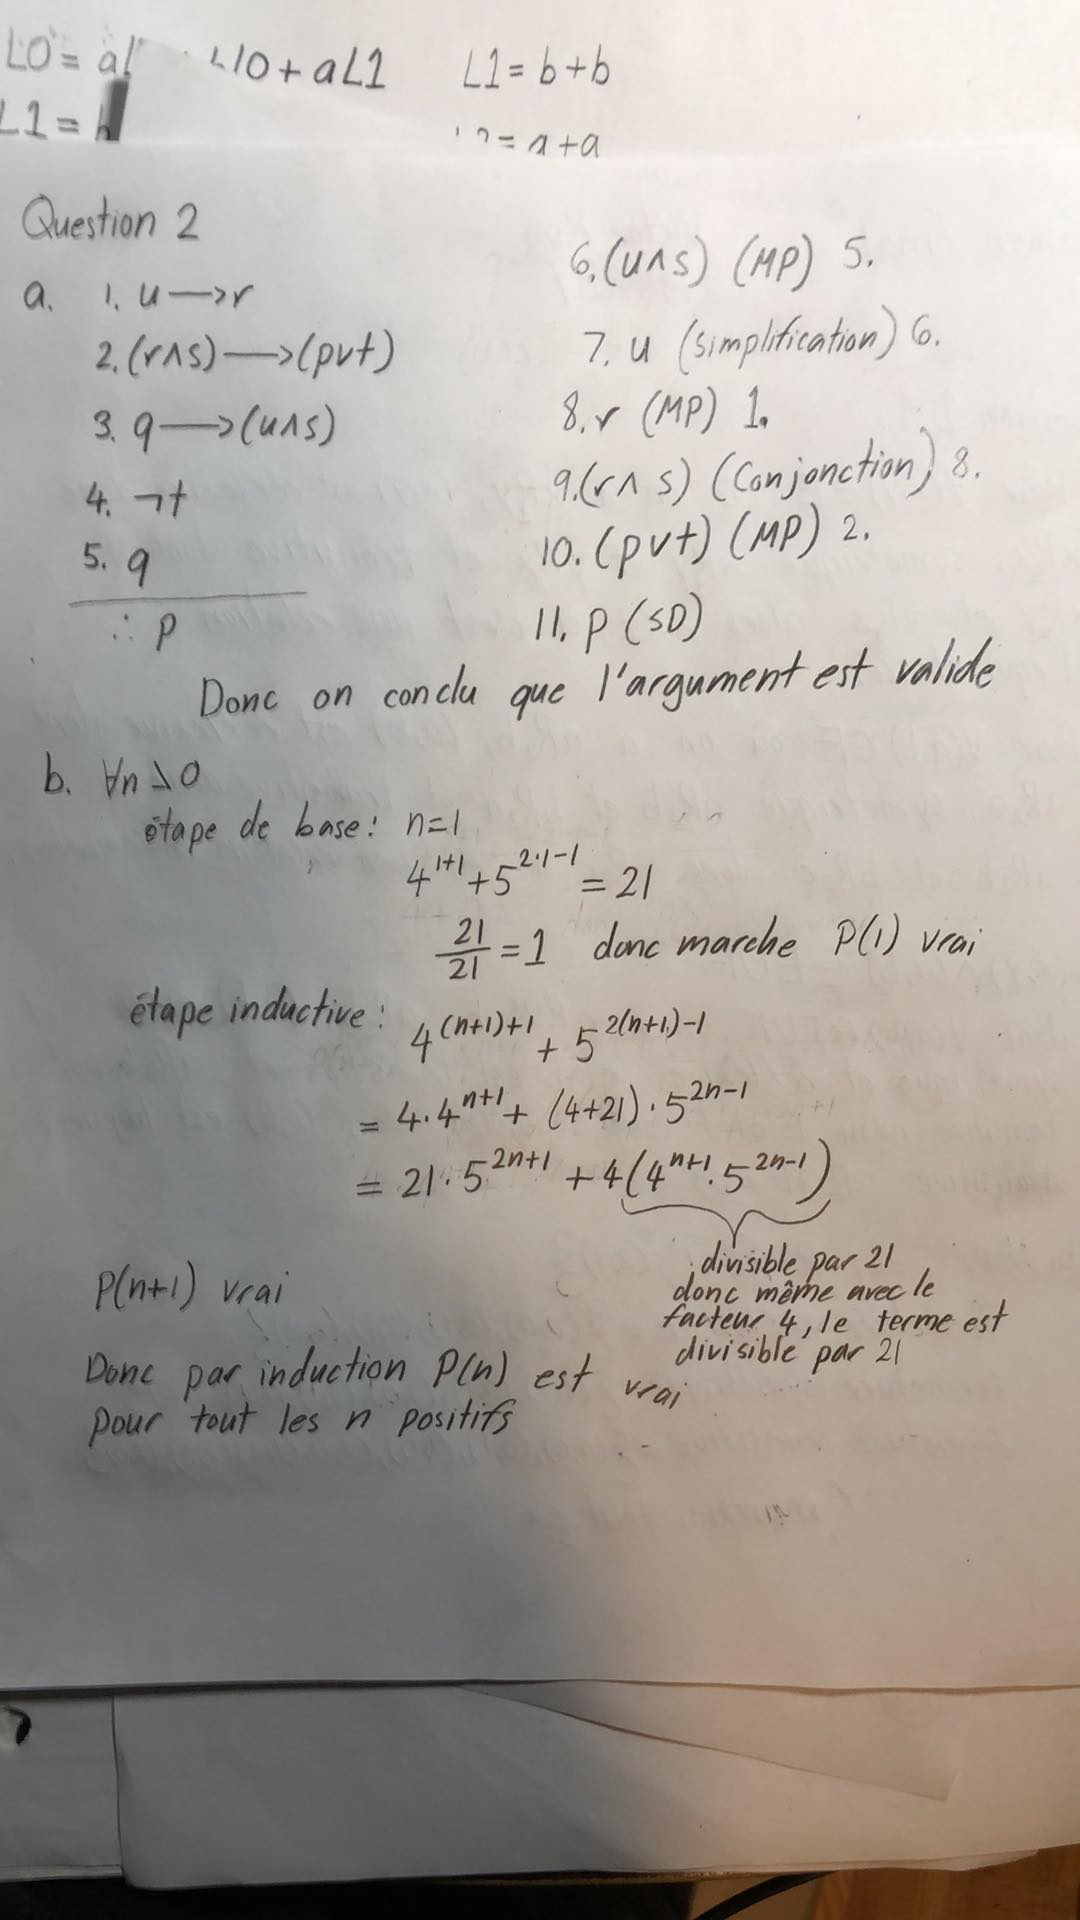 L0 = al L10 + aL1 L1 = b + b
L1 = = a + a
Question 2
a. 1. u → r
2. (r ∧ s) → (p ∨ t)
3. q → (u ∧ s)
4. ¬t
5. q
∴ p
6. (u ∧ s) (MP) 5.
7. u (simplification) 6.
8. r (MP) 1.
9. (r ∧ s) (Conjonction) 8.
10. (p ∨ t) (MP) 2.
11. p (SD)
Donc on conclu que l'argument est valide
b. ∀n > 0
étape de base: n=1
4^{1+1} + 5^{2·1-1} = 21
21/21 = 1 donc marche P(1) vrai
étape inductive: 4^{(n+1)+1} + 5^{2(n+1)-1}
= 4·4^{n+1} + (4+21)·5^{2n-1}
= 21·5^{2n+1} + 4(4^{n+1}·5^{2n-1})
divisible par 21
donc même avec le
facteur 4, le terme est
divisible par 21
P(n+1) vrai
Donc par induction P(n) est vrai
pour tout les n positifs